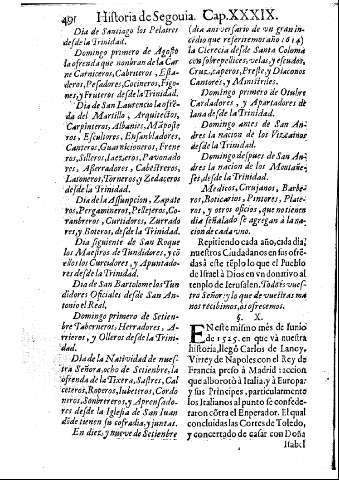 491 Historia de Segouia. Cap. XXXIX.
Dia de Santiago los Pelaires
desde la Trinidad.
Domingo primero de Agosto
la ofrenda que nombran de la Car
ne Carniceros, Cabriteros, Esta-
deros, Pescadores, Cocineros, Figo-
nes, y Fruteros desde la Trinidad.
Dia de San Laurencio la ofrē
da del Martillo, Arquitectos,
Carpinteros, Albanies, Māposte
ros, Escultores, Ensanbladores,
Canteros, Guarnicioneros, Frene
ros, Silleros, Iaezeros, Pavonado
res, Aserradores, Cabestreros,
Latoneros, Torneros y Zedaceros
desde la Trinidad.
Dia de la Assunpcion, Zapate
ros, Pergamineros, Pellejeros, Co-
ranbreros, Curtidores, Zurrado
res, y Boteros, desde la Trinidad.
Dia siguiente de San Roque
los Maestros de Tundidores, y cō
ellos los Curcidores, y Apuntado-
res desde la Trinidad.
Dia de San Bartolome los Tun
didores Oficiales desde San An-
tonio el Real.
Domingo primero de Setien-
bre Taberneros, Herradores, A-
rrieros, y Olleros desde la Trini-
dad.
Dia de la Natividad de nues-
tra Señora, ocho de Setienbre, la
ofrenda de la Tixera, Sastres, Cal
ceteros, Roperos, Iubeteros, Cordo
neros, Sonbrereros, y Aprensado-
res desde la Iglesia de San Iuan
dōde tienen su cofradia, y juntas.
En diez, y nueve de Setienbre
(dia aniversario de vn gran in-
cēdio que referiremos año 1614)
la Clerecia desde Santa Coloma
con sobrepellices, velas, y escudos,
Cruz, zaperos, Preste y Diaconos
Cantores, y Ministriles.
Domingo primero de Otubre
Cardadores, y Apartadores de
lana desde la Trinidad.
Domingo antes de San An-
dres la nacion de los Vizcainos
desde la Trinidad.
Domingo despues de San An-
dres la nacion de los Montañe-
ses, desde la Trinidad.
Medicos, Cirujanos, Barbe-
ros, Boticarios, Pintores, Plate-
ros, y otros oficios, que no tienen
dia señalado se agregan a la na-
cion de cada vno.
Repitiendo cada año, cada dia
nuestros Ciudadanos en sus ofrē-
das à este tēplo lo que el Pueblo
de Israel à Dios en vn donativo al
templo de Ierusalen. Todas es vues-
tro Señor: y lo que de vuestras ma
nos recibimos, os ofrecemos.
§. X.
EN este mismo mes de Iunio
de 1525. en que và nuestra
historia, llegò Carlos de Lanoy,
Virrey de Napoles con el Rey de
Francia preso à Madrid: accion
que alborotò à Italia, y à Europa:
y sus Principes, particularmente
los Italianos al punto se confede-
raron cōtra el Enperador. El qual
concluidas las Cortes de Toledo,
y concertado de casar con Doña
Isabel